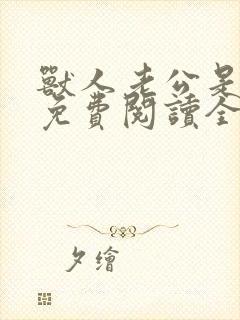 獸人老公是
免費閱讀全
夕繪